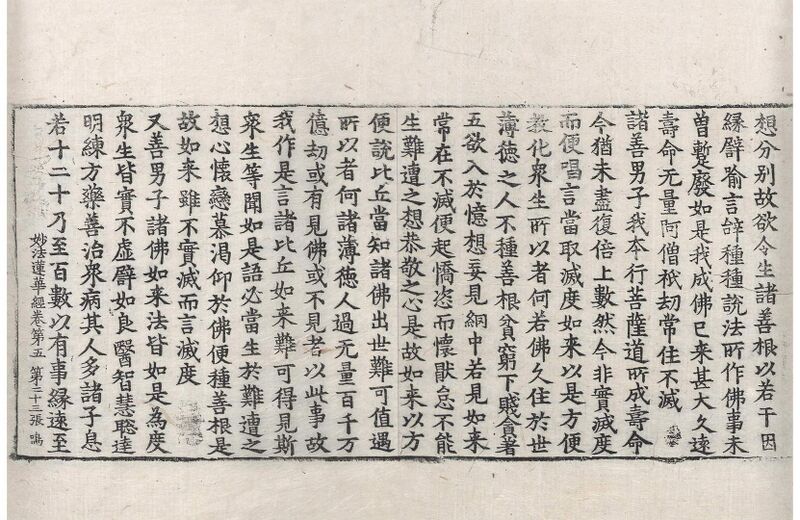 想分別故欲令生諸善根以若干因
緣譬喻言辝種種說法所作佛事未
曽蹔廢如是我成佛已来甚大久遠
壽命无量阿僧祇刧常住不滅
諸善男子我本行菩薩道所成壽命
今猶未盡復倍上數然今非實滅度
而便唱言當取滅度如来以是方便
教化衆生所以者何若佛久住於世
薄徳之人不種善根貧窮下賤貪著
五欲入於憶想妄見網中若見如来
常在不滅便起憍恣而懷猒怠不能
生難遭之想恭敬之心是故如来以方
便說比丘當知諸佛出世難可值遇
所以者何諸薄徳人過无量百千万
億刧或有見佛或不見者以此事故
我作是言諸比丘如来難可得見斯
衆生等聞如是語必當生於難遭之
想心懷戀慕渴仰於佛便種善根是
故如来雖不實滅而言滅度
又善男子諸佛如来法皆如是為度
衆生皆實不虛譬如良醫智慧聦達
明練方藥善治衆病其人多諸子息
若十二十乃至百數以有事緣遠至
妙法蓮華經卷第五 第二十三張 鳴